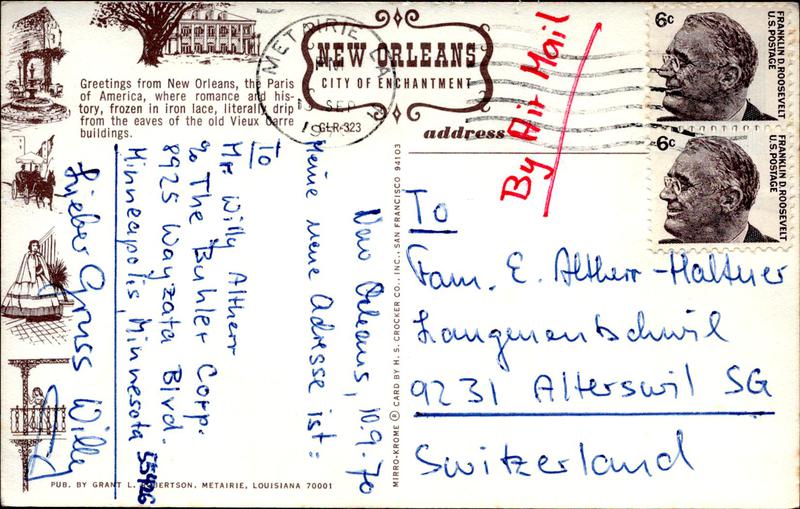 Greetings from New Orleans, the Paris
of America, where romance and his-
tory, frozen in iron lace, literally drip
from the eaves of the old Vieux Carre
buildings.
NEW ORLEANS
CITY OF ENCHANTMENT
GLR-323
address
METAIRIE, LA
PM
SEP
19
By Air Mail
6c
FRANKLIN D. ROOSEVELT
U.S. POSTAGE
6c
FRANKLIN D. ROOSEVELT
U.S. POSTAGE
New Orleans, 10.9.70
Meine neue Adresse ist:
To
Mr Willy Altherr
c/o The Buhler Corp.
8925 Wayzata Blvd.
Minneapolis, Minnesota 55426
Lieber Gruss Willy
To
Fam. E. Altherr-Haltner
Langenentschwil
9231 Alterswil SG
Switzerland
MIRRO-KROME ® CARD BY H. S. CROCKER CO., INC., SAN FRANCISCO 94103
PUB. BY GRANT L. ROBERTSON, METAIRIE, LOUISIANA 70001